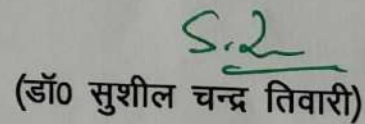 (डॉ0 सुशील चन्द्र तिवारी)